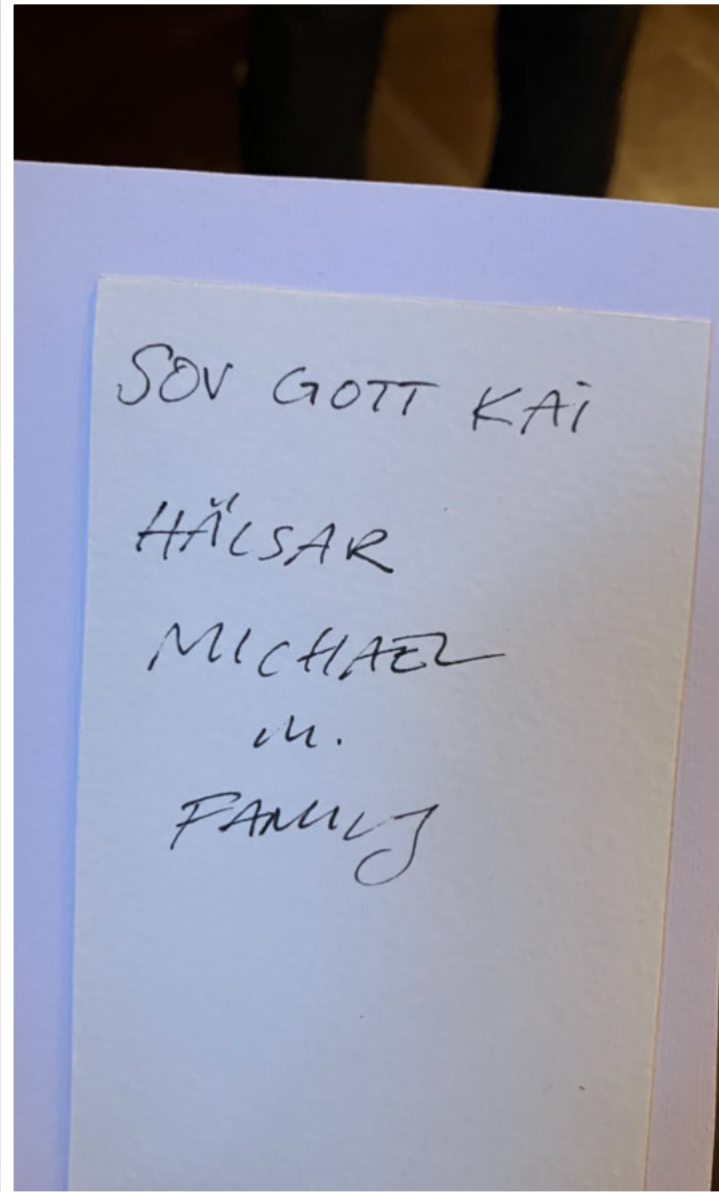 SOV GOTT KAi
HÄLSAR
MICHAEL
M.
FAMILJ